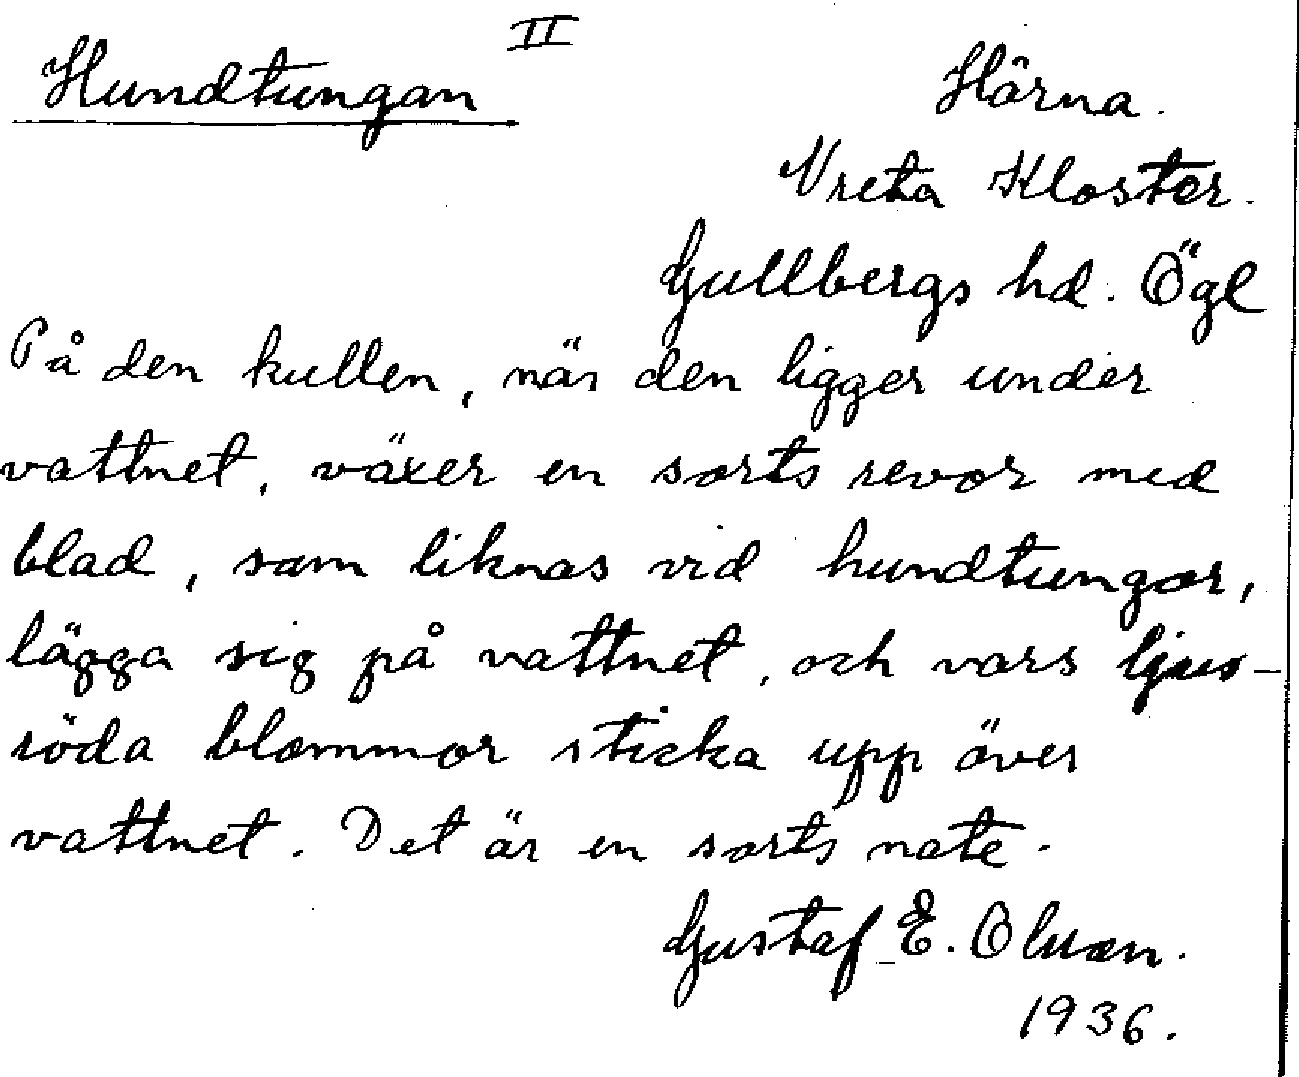 II
Hundtungan
Härna.
Vreta Kloster.
Gullbergs hd. Ögl
På den kullen, när den ligger under
vattnet, växer en sorts revor med
blad, som liknas vid hundtungor,
lägga sig på vattnet, och vars ljus-
röda blommor sticka upp över
vattnet. Det är en sorts nate.
Gustaf E. Olsson.
1936.